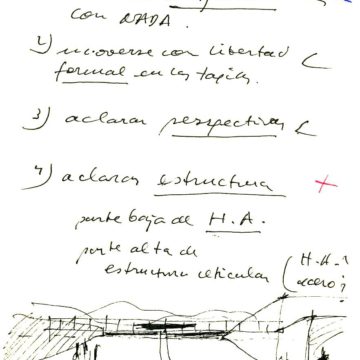 con NADA.
2) moverse con libertad
formal en las tapias.
3) aclarar perspectivas
4) aclarar estructura
parte baja de H.A.
parte alta de
estructura reticular (H.A.?
acero?